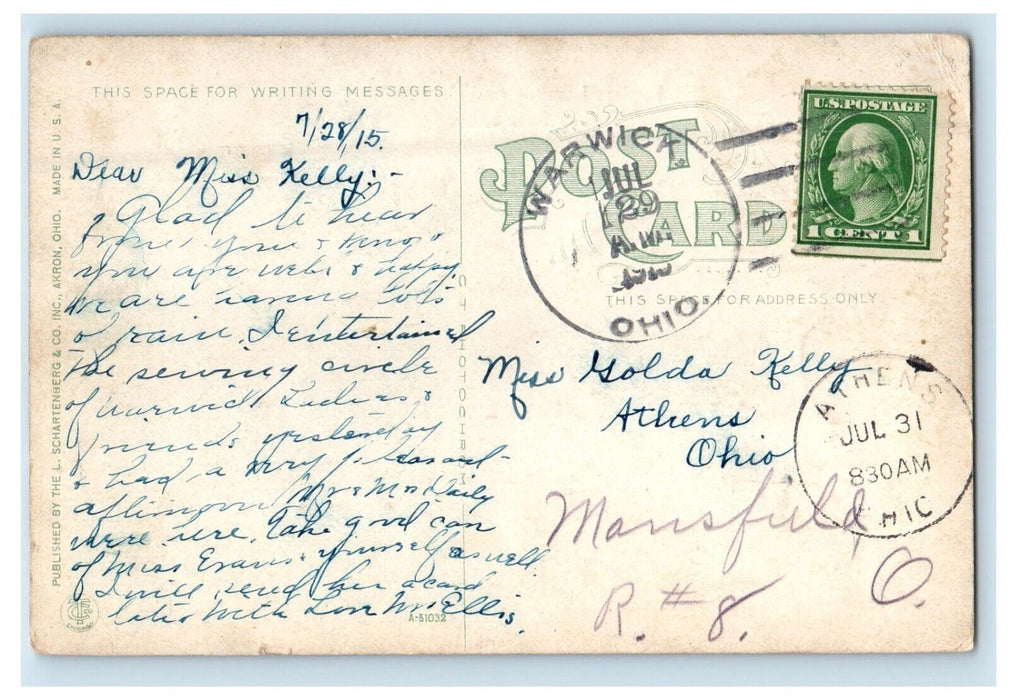 THIS SPACE FOR WRITING MESSAGES
7/28/15.
Dear Miss Kelly:-
Glad to hear
from you & know
you are well & happy
we are having lots
of rain. I entertained
the sewing circle
of Warwick Ladies &
friends yesterday
& had a very pleasant
afternoon Mr & Mrs Daily
were here. Take good care
of Miss Evans & yourself as well.
I will send her a card
later With Love Mrs Ellis.
PUBLISHED BY THE L. SCHARTENBERG & CO. INC., AKRON, OHIO. MADE IN U. S. A.
C. T. PHOTOCHROM
A-51032
CHICAGO
POST CARD
WARWICK
JUL
29
A.M.
OHIO
U.S. POSTAGE
1 CENT 1
THIS SPACE FOR ADDRESS ONLY
Miss Golda Kelly
Athens
Ohio
ATHENS
JUL 31
830AM
OHIO
Mansfield
O.
R. # 8.